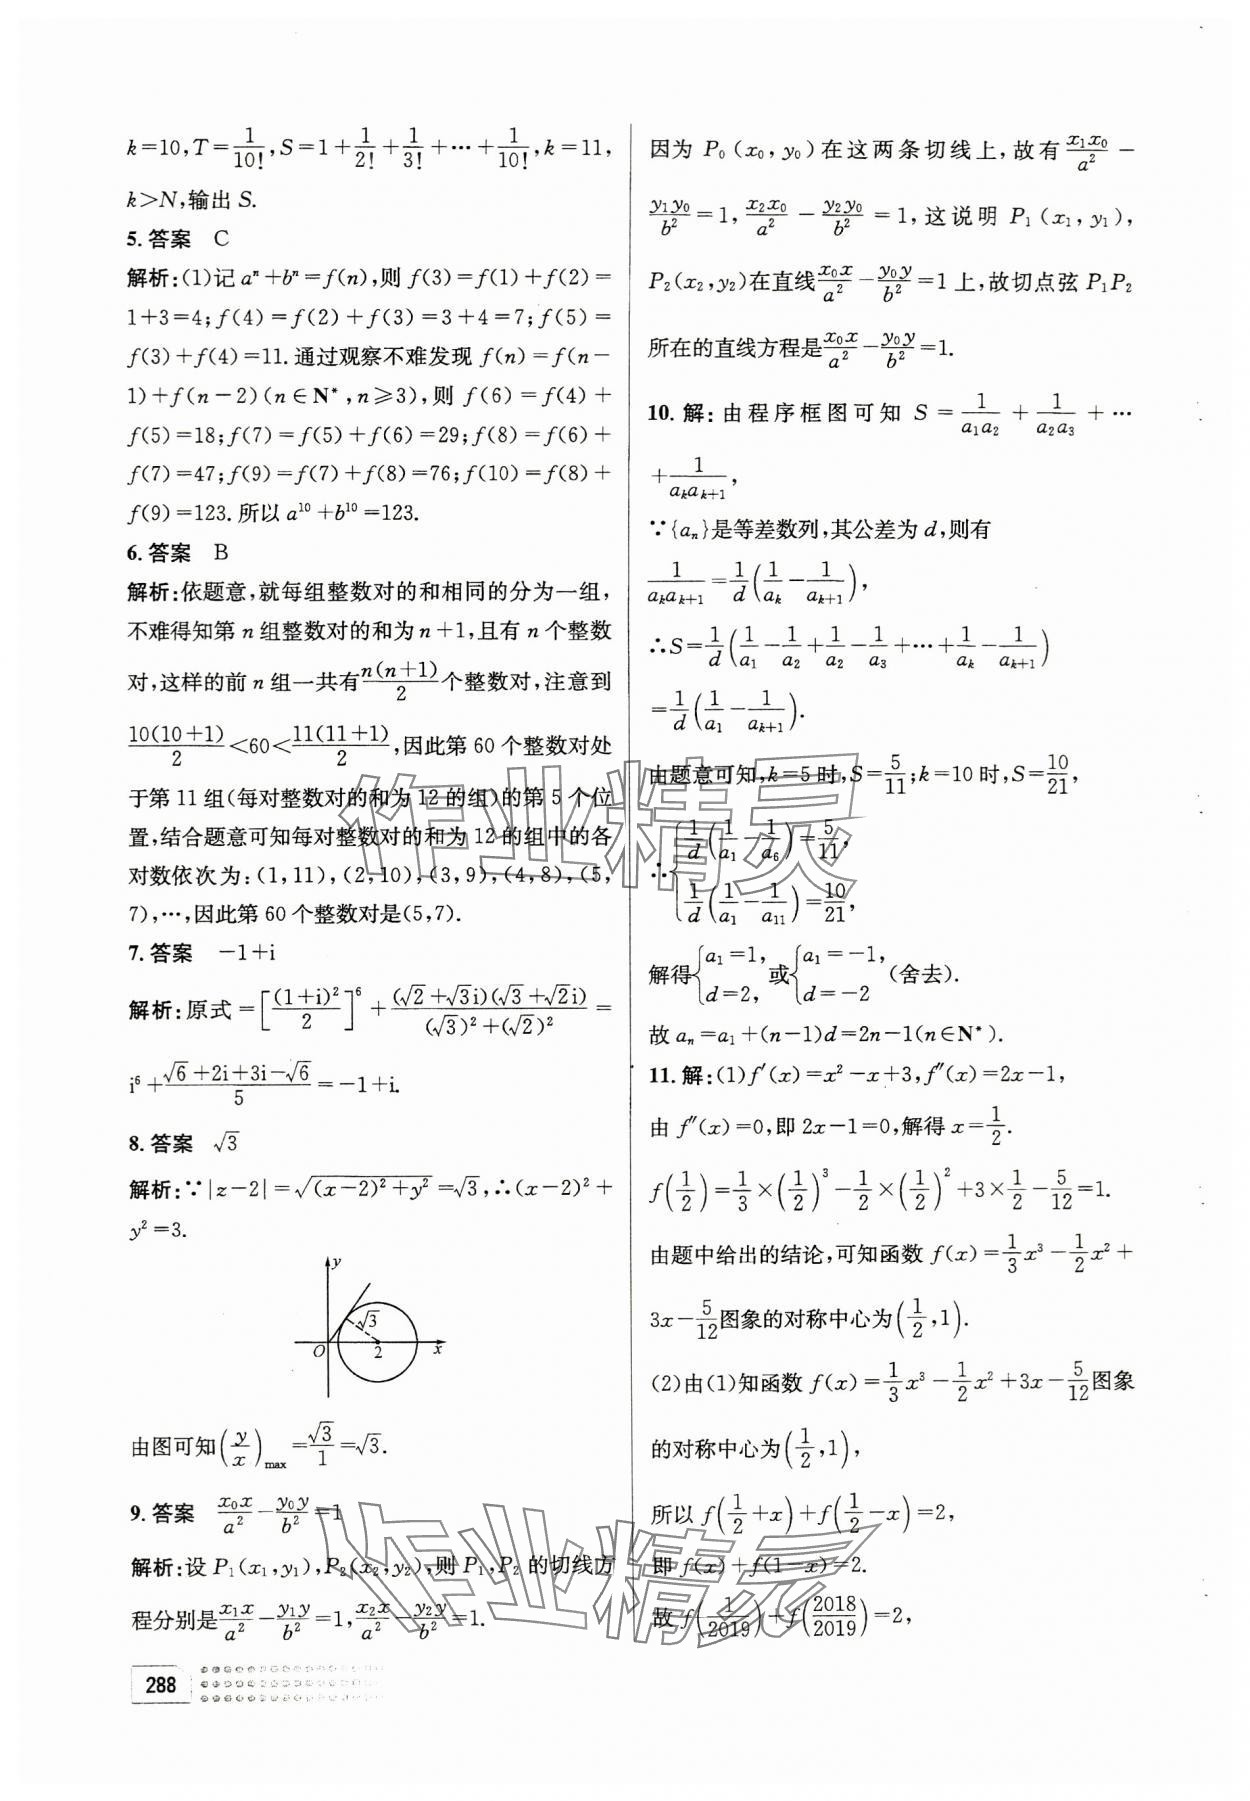 k=10,T=1/10!,S=1+1/2!+1/3!+…+1/10!,k=11,
k>N,输出 S.
5.答案 C
解析:(1)记 aⁿ+bⁿ=f(n),则 f(3)=f(1)+f(2)=
1+3=4;f(4)=f(2)+f(3)=3+4=7;f(5)=
f(3)+f(4)=11.通过观察不难发现 f(n)=f(n-
1)+f(n-2)(n∈N*,n≥3),则 f(6)=f(4)+
f(5)=18;f(7)=f(5)+f(6)=29;f(8)=f(6)+
f(7)=47;f(9)=f(7)+f(8)=76;f(10)=f(8)+
f(9)=123.所以 a¹⁰+b¹⁰=123.
6.答案 B
解析:依题意,就每组整数对的和相同的分为一组,
不难得知第 n 组整数对的和为 n+1,且有 n 个整数
对,这样的前 n 组一共有n(n+1)/2个整数对,注意到
10(10+1)/2<60<11(11+1)/2,因此第 60 个整数对处
于第 11 组(每对整数对的和为 12 的组)的第 5 个位
置,结合题意可知每对整数对的和为 12 的组中的各
对数依次为:(1,11),(2,10),(3,9),(4,8),(5,
7),…,因此第 60 个整数对是(5,7).
7.答案 -1+i
解析:原式=[(1+i)²/2]⁶+(√2+√3i)(√3+√2i)/((√3)²+(√2)²)=
i⁶+(√6+2i+3i-√6)/5=-1+i.
8.答案 √3
解析:∵|z-2|=√((x-2)²+y²)=√3,∴(x-2)²+
y²=3.
y
√3
O 2 x
由图可知(y/x)max=√3/1=√3.
9.答案 x₀x/a²-y₀y/b²=1
解析:设 P₁(x₁,y₁),P₂(x₂,y₂),则 P₁,P₂ 的切线方
程分别是x₁x/a²-y₁y/b²=1,x₂x/a²-y₂y/b²=1.
288
因为 P₀(x₀,y₀)在这两条切线上,故有x₁x₀/a²-
y₁y₀/b²=1,x₂x₀/a²-y₂y₀/b²=1,这说明 P₁(x₁,y₁),
P₂(x₂,y₂)在直线x₀x/a²-y₀y/b²=1上,故切点弦 P₁P₂
所在的直线方程是x₀x/a²-y₀y/b²=1.
10.解:由程序框图可知 S=1/(a₁a₂)+1/(a₂a₃)+…
+1/(aₖaₖ₊₁),
∵{aₙ}是等差数列,其公差为 d,则有
1/(aₖaₖ₊₁)=1/d(1/aₖ-1/aₖ₊₁),
∴S=1/d(1/a₁-1/a₂+1/a₂-1/a₃+…+1/aₖ-1/aₖ₊₁)
=1/d(1/a₁-1/aₖ₊₁).
由题意可知,k=5 时,S=5/11;k=10 时,S=10/21,
∴{1/d(1/a₁-1/a₆)=5/11,
1/d(1/a₁-1/a₁₁)=10/21,
解得{a₁=1,d=2,或{a₁=-1,d=-2(舍去).
故 aₙ=a₁+(n-1)d=2n-1(n∈N*).
11.解:(1)f′(x)=x²-x+3,f″(x)=2x-1,
由 f″(x)=0,即 2x-1=0,解得 x=1/2.
f(1/2)=1/3×(1/2)³-1/2×(1/2)²+3×1/2-5/12=1.
由题中给出的结论,可知函数 f(x)=1/3x³-1/2x²+
3x-5/12图象的对称中心为(1/2,1).
(2)由(1)知函数 f(x)=1/3x³-1/2x²+3x-5/12图象
的对称中心为(1/2,1),
所以 f(1/2+x)+f(1/2-x)=2,
即 f(x)+f(1-x)=2.
故 f(1/2019)+f(2018/2019)=2,
作业精灵
作业精灵